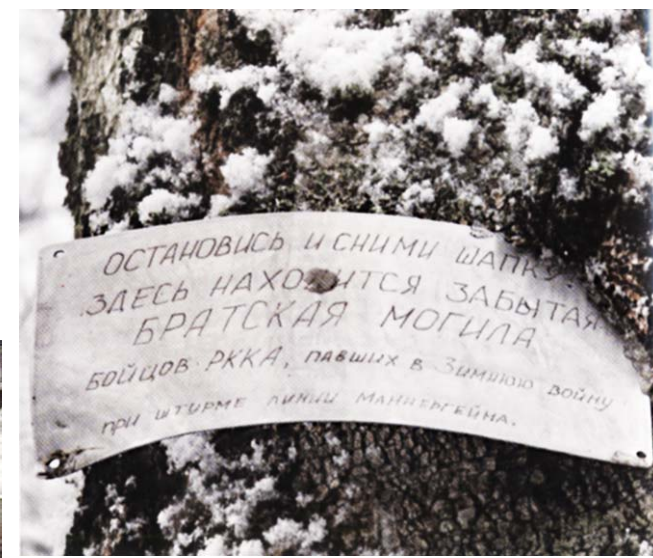 ОСТАНОВИСЬ И СНИМИ ШАПКУ.
ЗДЕСЬ НАХОДИТСЯ ЗАБЫТАЯ
БРАТСКАЯ МОГИЛА
БОЙЦОВ РККА, ПАВШИХ В ЗИМНЮЮ ВОЙНУ
ПРИ ШТУРМЕ ЛИНИИ МАННЕРГЕЙМА.